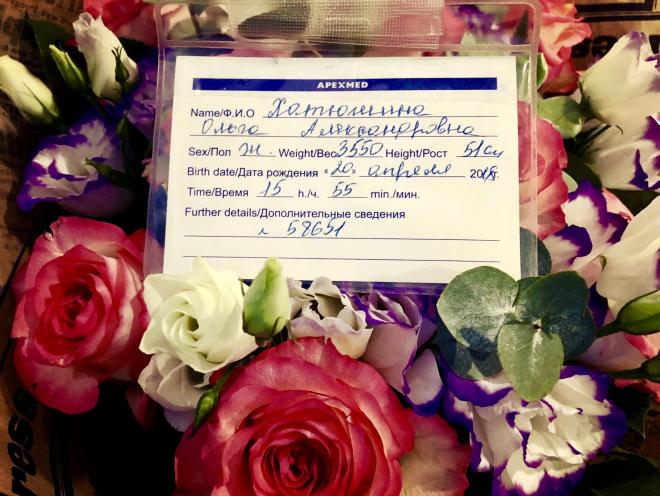 APEXMED
Name/Ф.И.О Хатюшина
Ольга Александровна
Sex/Пол Ж. Weight/Вес 3550 Height/Рост 51 см
Birth date/Дата рождения «20» апреля 2018г.
Time/Время 15 h./ч. 55 min./мин.
Further details/Дополнительные сведения
58651
ress